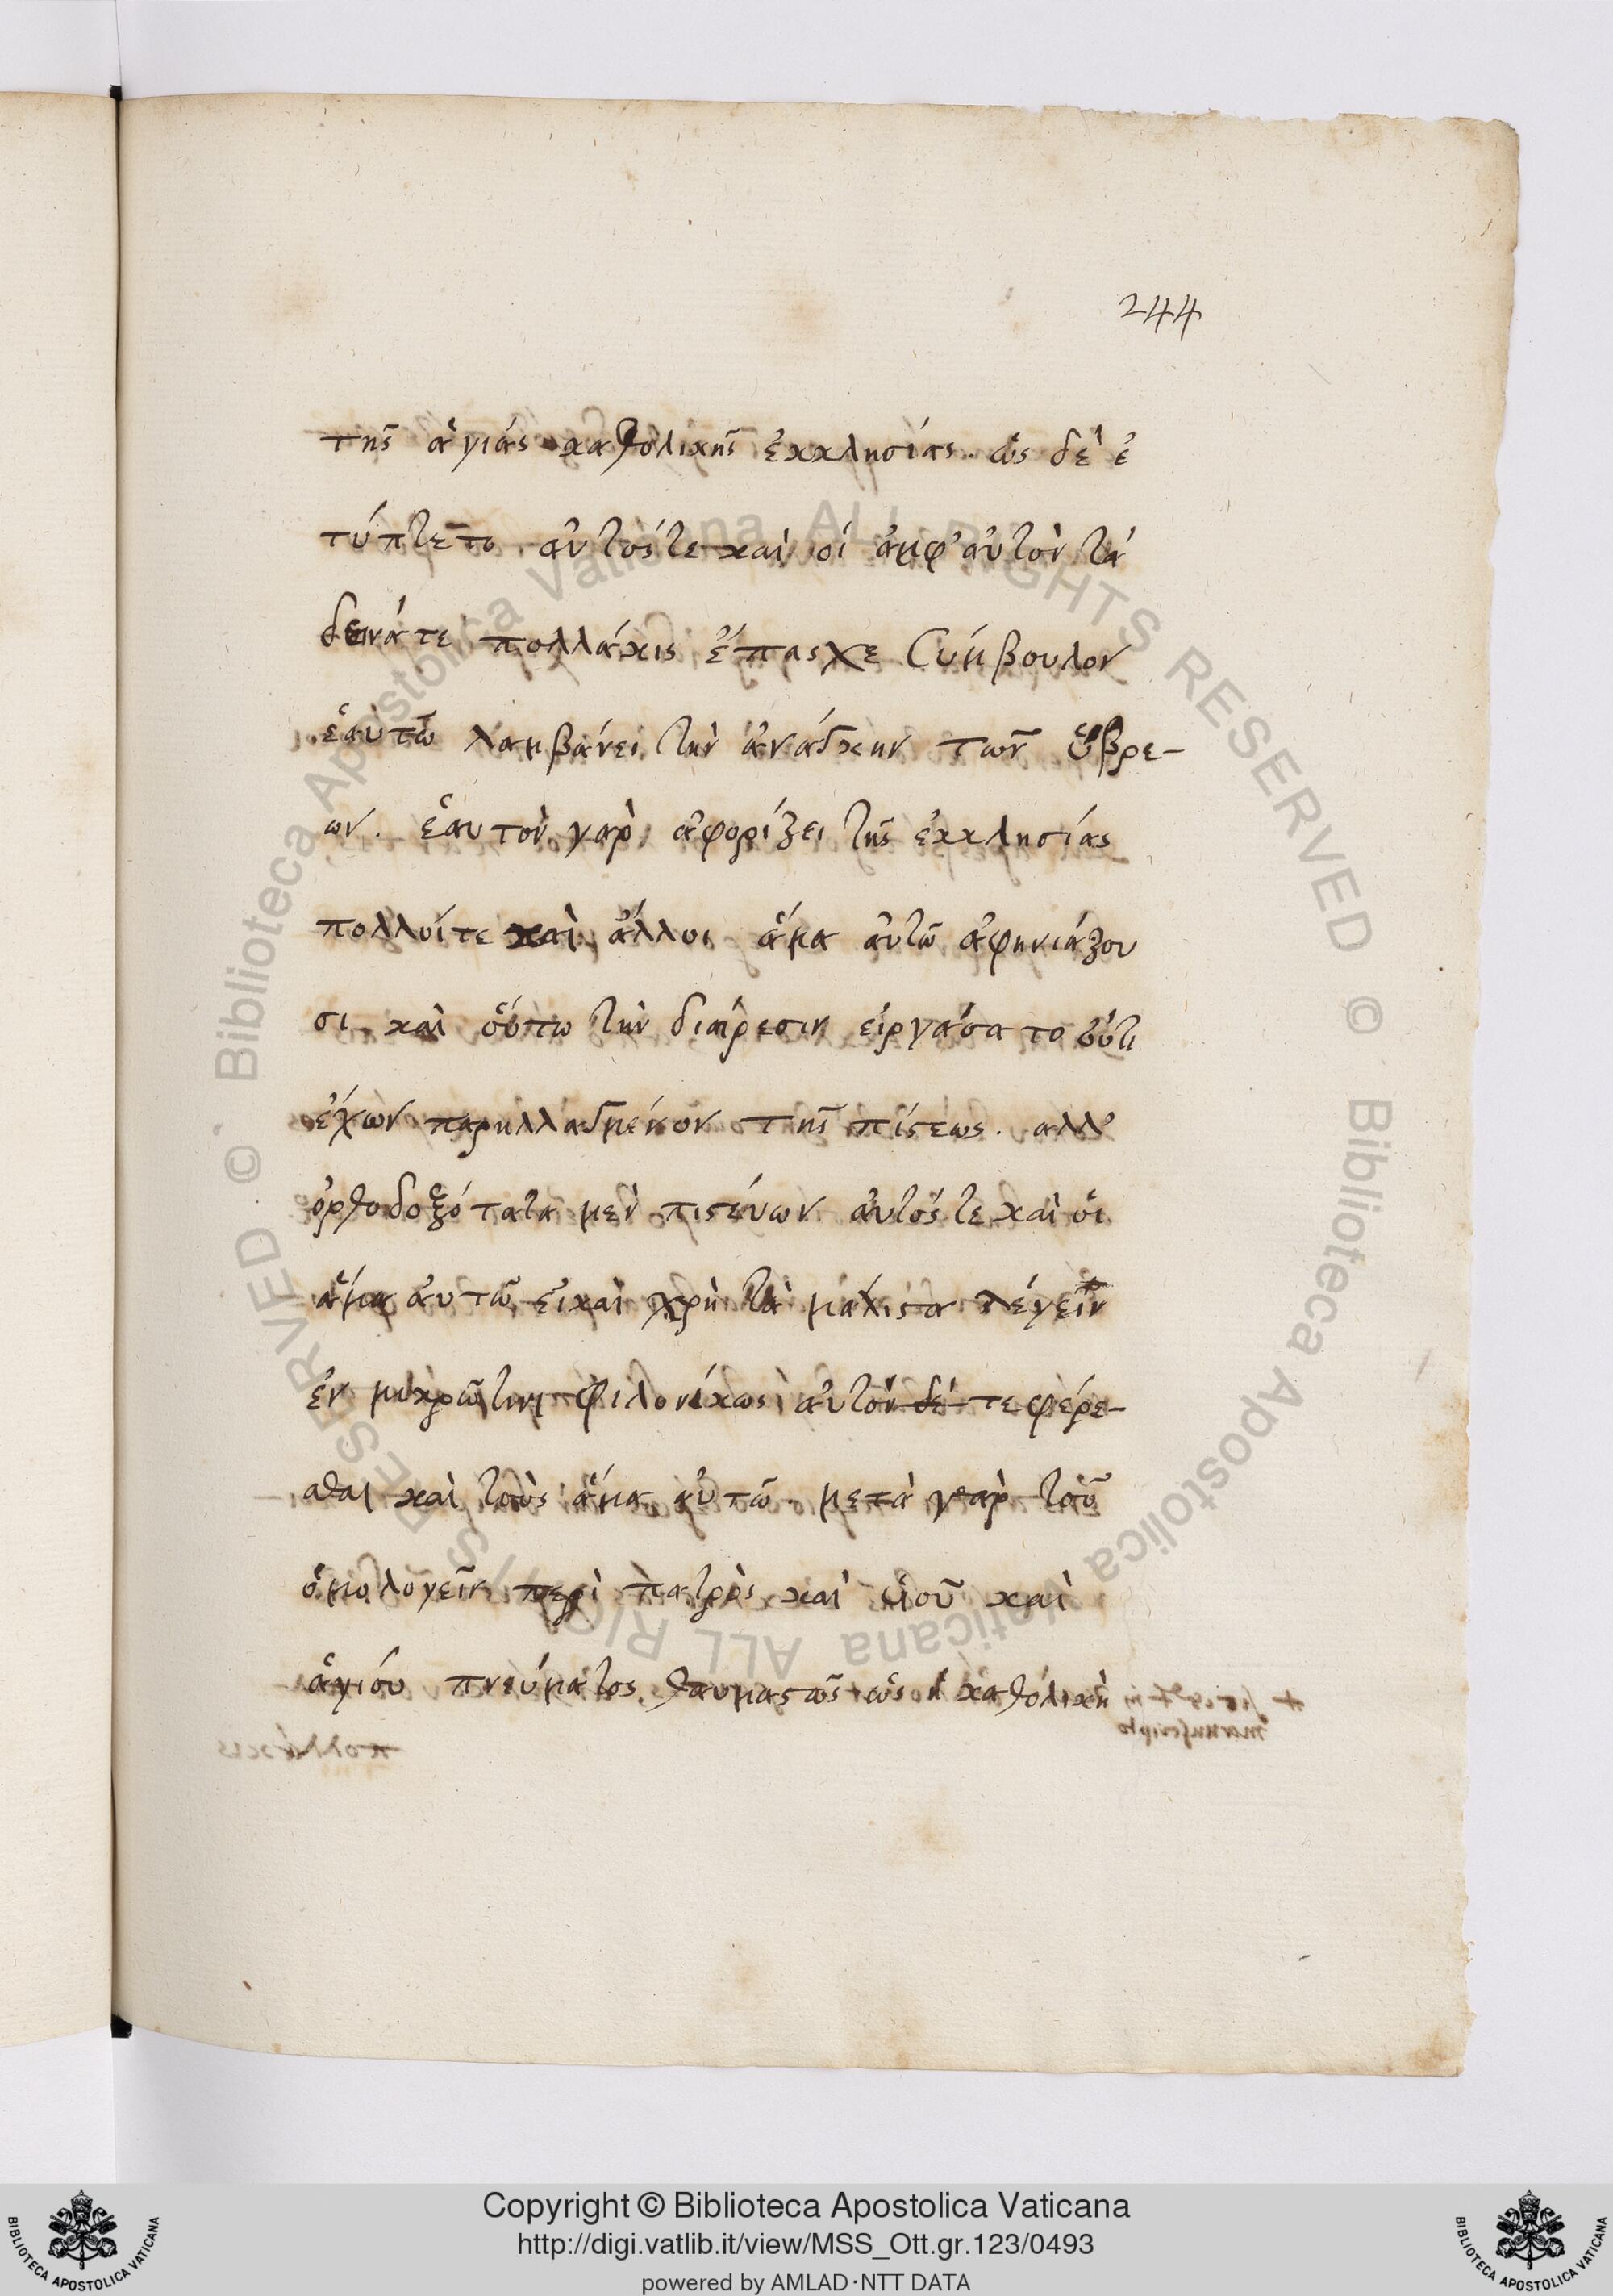 244
της ἁγιάς καθολικης ἐκκλησίας. ὡς δὲ ἐ
τύπτετο αὐτόςτε καὶ οἱ ἀμφ᾽ αὐτὸν τά
δεινάτε πολλάκις ἔπασχε Σύμβουλον
ἑαὐτῶ λαμβάνει τὴν ἀνάγκην τῶν ὕβρε-
ων. ἑαυτὸν γαρ ἀφορίζει τῆς ἐκκλησίας
πολλοίτε καὶ ἄλλοι ἅμα αὐτῶ ἀφηνιάζου
σι. καὶ οὕτω τὴν διαίρεσιν εἰργάσατο οὔτι
ἐχων παρηλλαγμένον τῆς πίστεως. αλλ᾽
ὀρθοδοξότατα μεν πιστεύων αὐτός τε καὶ οἱ
ἅμα ἀυτῶ, εἰ καὶ χρὴ τὰ μάλιστα λέγειν
ἐν μικρῶ τινι φιλονίκως αὐτὸν δέ τε φέρε-
σθαι καὶ τοὺς ἅμα αὐτῶ. μετὰ γαρ τοῦ
ὁμολογεῖν περὶ πατρὸς καὶ υἱοῦ καὶ
ἁγίου πνεύματος θαυμαστῶς ὡς ἡ καθόλικὴ
Copyright © Biblioteca Apostolica Vaticana
http://digi.vatlib.it/view/MSS_Ott.gr.123/0493
powered by AMLAD·NTT DATA
BIBLIOTECA APOSTOLICA VATICANA
BIBLIOTECA APOSTOLICA VATICANA
© Biblioteca Apostolica Vaticana ALL RIGHTS RESERVED
© Biblioteca Apostolica Vaticana ALL RIGHTS RESERVED